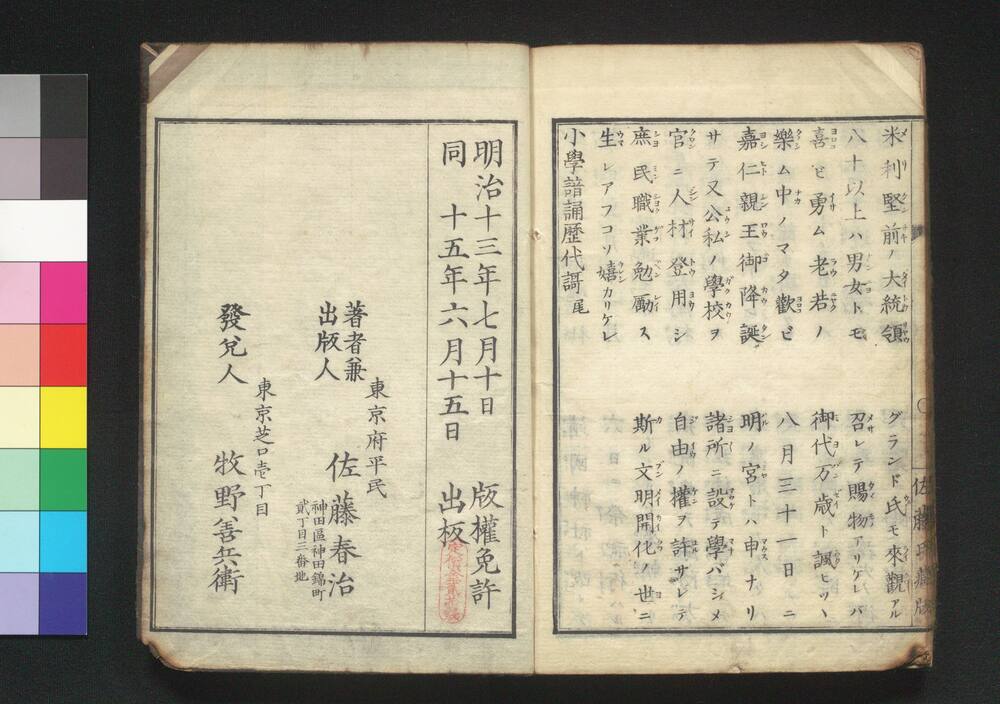 米利堅前ノ大統領
グランド氏モ來觀アル
八十以上ハ男女トモ
召レテ賜物アリケレバ
喜ビ勇ム老若ノ
御代万歳ト諷ヒツヽ
樂ム中ノマタ歡ビ
八月三十一日ニ
嘉仁親王御降誕
明ノ宮トハ申ナリ
サテ又公私ノ學校ヲ
諸所ニ設テ學バシメ
官ニ人材登用シ
自由ノ權ヲ許サレテ
庶民職業勉勵ス
斯ル文明開化ノ世ニ
生レアフコソ嬉カリケレ
小學諳誦歷代謌尾
佐藤氏藏版
明治十三年七月十日 版權免許
同 十五年六月十五日 出板
東京府平民
著者兼
出版人
佐藤春治
神田區神田錦町
貳丁目三番地
東京芝口壱丁目
發兌人 牧野善兵衛